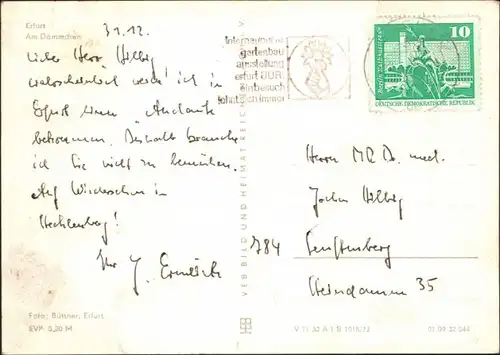 Erfurt
Am Dämmchen
31.12.
Liebe Herr Helbig
wahrscheinlich werde ich in
Erfurt einen "Andante"
bekommen. Deshalb brauche
ich Sie nicht zu bemühen.
Auf Wiedersehen in
Mecklenburg!
Ihr J.
Foto: Büttner, Erfurt
EVP 0,20 M
VEB BILD UND HEIMAT REICHENBACH
Internationale
gartenbau
ausstellung
erfurt DDR
ein besuch
lohnt sich immer
10
DEUTSCHE DEMOKRATISCHE REPUBLIK
Herrn MR Dr. med.
Jochen Helbig
784 Senftenberg
Steindamm 35
V 11 32 A 1 B 1018/73
01 09 32 044